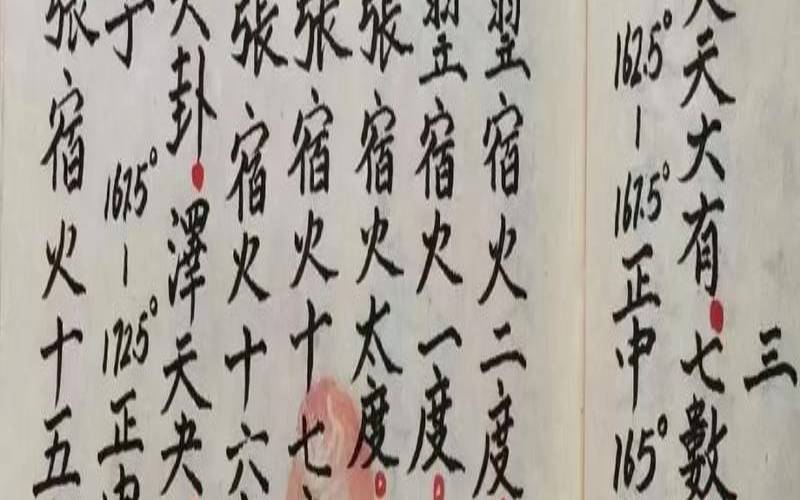 三
天大有。七數
162.5°-167.5°正中165°
翌宿火二度
翌宿火一度。
張宿火太度。
張宿火十七
張宿火十六
卦。澤天夬
丁 167.5°-172.5°正中
張宿火十五